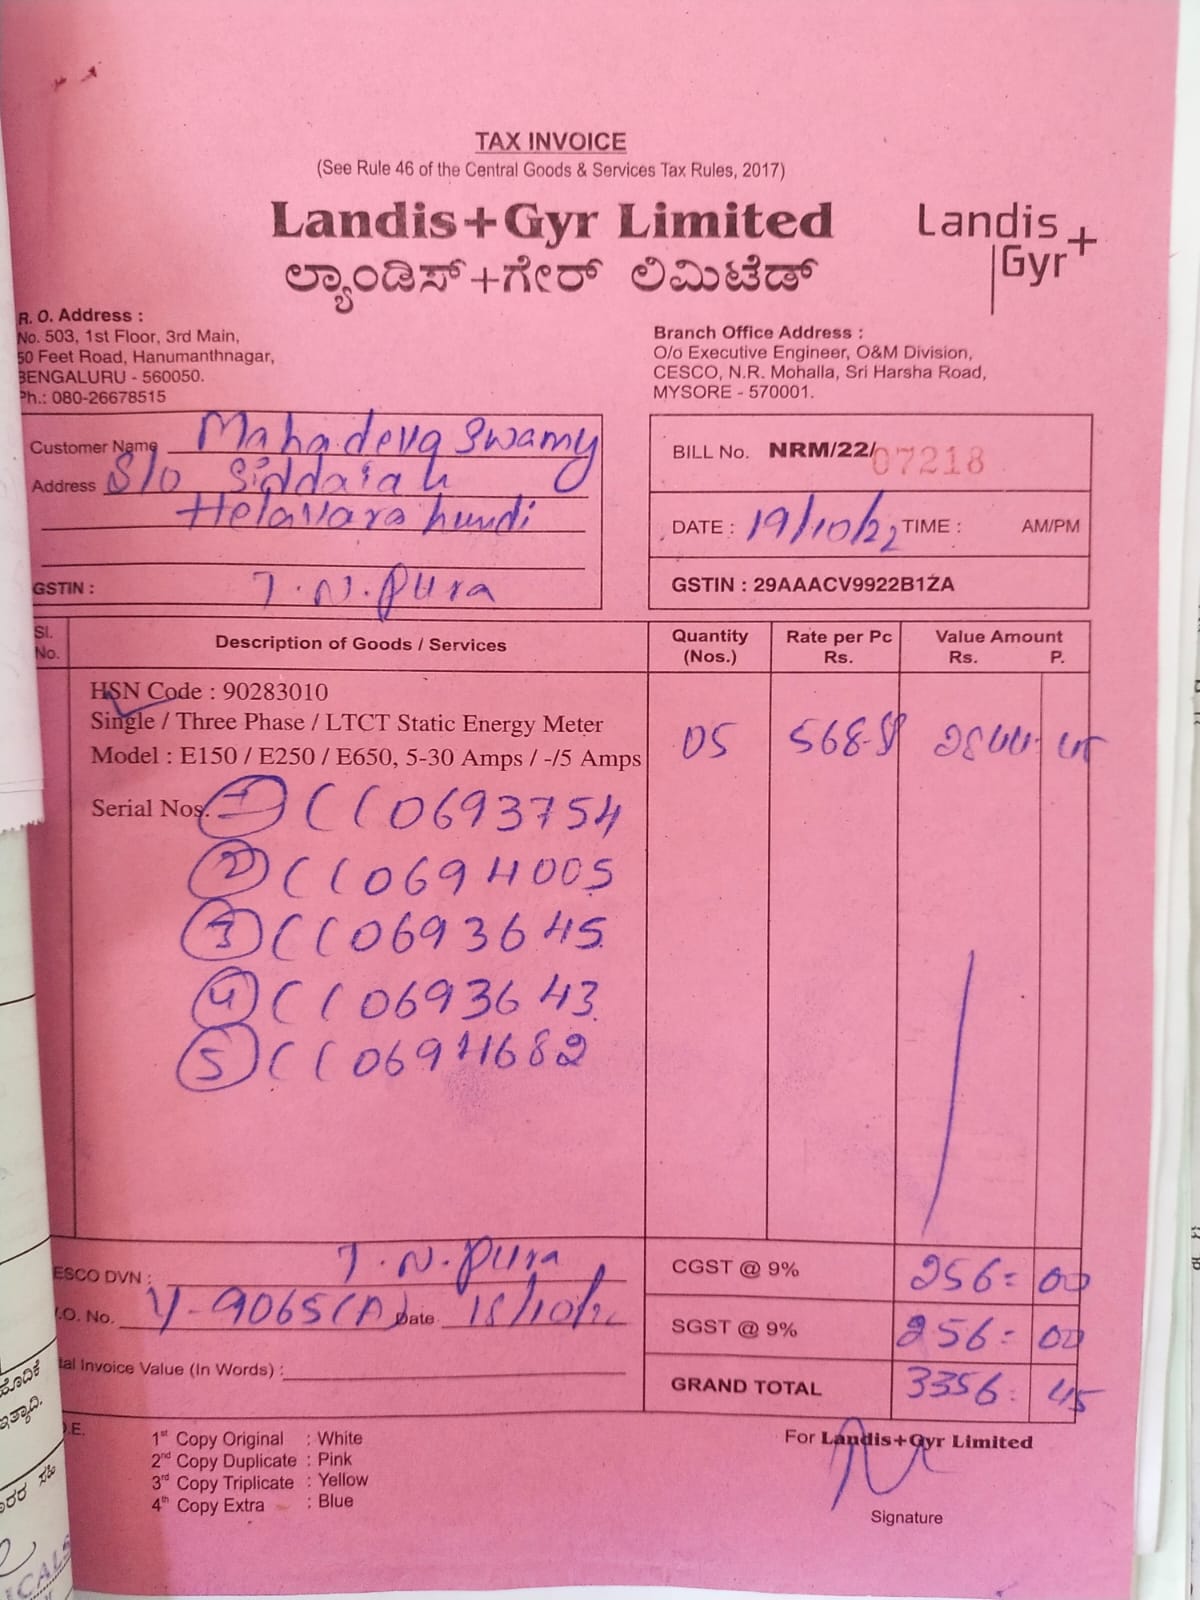 TAX INVOICE
(See Rule 46 of the Central Goods & Services Tax Rules, 2017)
Landis+Gyr Limited
ಲ್ಯಾಂಡಿಸ್+ಗೇರ್ ಲಿಮಿಟೆಡ್
Landis
Gyr+
R. O. Address :
No. 503, 1st Floor, 3rd Main,
50 Feet Road, Hanumanthnagar,
BENGALURU - 560050.
Ph.: 080-26678515
Branch Office Address :
O/o Executive Engineer, O&M Division,
CESCO, N.R. Mohalla, Sri Harsha Road,
MYSORE - 570001.
Customer Name Mahadeva Swamy
Address S/o Siddaiah
Helavara hundi
GSTIN : T. N. Pura
BILL No. NRM/22/07218
DATE : 19/10/22 TIME : AM/PM
GSTIN : 29AAACV9922B1ZA
Sl. No. Description of Goods / Services Quantity (Nos.) Rate per Pc Rs. Value Amount Rs. P.
HSN Code : 90283010
Single / Three Phase / LTCT Static Energy Meter
Model : E150 / E250 / E650, 5-30 Amps / -/5 Amps 05 568-9 2844- 45
Serial Nos. 1 CC0693754
2 CC0694005
3 CC0693645
4 CC0693643
5 CC0694682
ESCO DVN : T. N. Pura
.O. No. Y-9065(A) Date 18/10/22
tal Invoice Value (In Words) :
CGST @ 9% 256= 00
SGST @ 9% 256= 00
GRAND TOTAL 3356= 45
.E.
1st Copy Original : White
2nd Copy Duplicate : Pink
3rd Copy Triplicate : Yellow
4th Copy Extra : Blue
For Landis+Gyr Limited
Signature